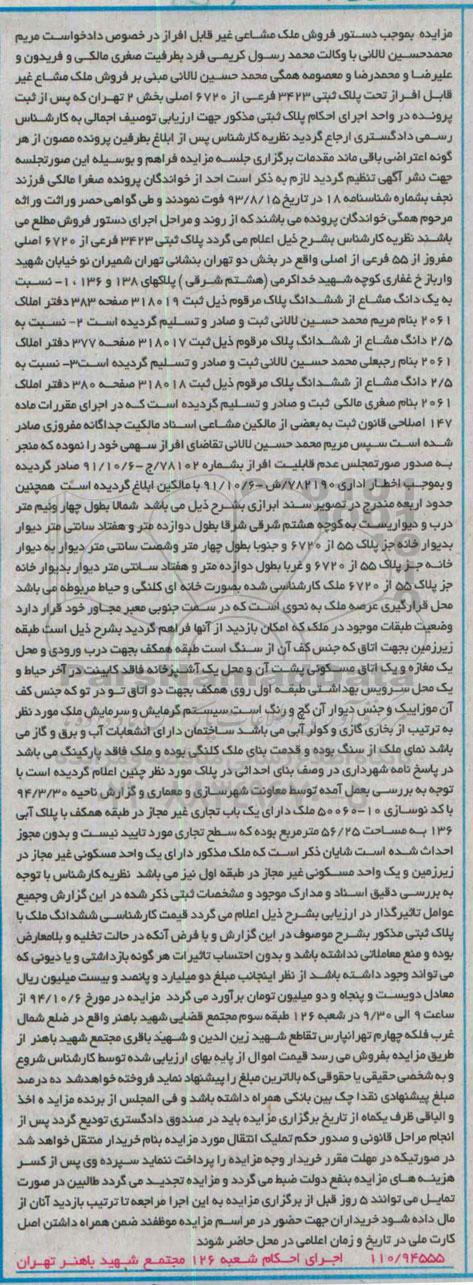 مزایده بموجب دستور فروش ملک مشاعی غیر قابل افراز در خصوص دادخواست مریم
محمدحسین لالانی با وکالت محمد رسول کریمی فرد بطرفیت صغری مالکی و فریدون و
علیرضا و محمدرضا و معصومه همگی محمد حسین لالانی مبنی بر فروش ملک مشاع غیر
قابل افراز تحت پلاک ثبتی ۳۴۲۳ فرعی از ۶۷۲۰ اصلی بخش ۲ تهران که پس از ثبت
پرونده در واحد اجرای احکام پلاک ثبتی مذکور جهت ارزیابی توصیف اجمالی به کارشناس
رسمی دادگستری ارجاع گردید نظریه کارشناس پس از ابلاغ بطرفین پرونده مصون از هر
گونه اعتراضی باقی ماند مقدمات برگزاری جلسه مزایده فراهم و بوسیله این صورتجلسه
جهت نشر آگهی تنظیم گردید لازم به ذکر است احد از خواندگان پرونده صغرا مالکی فرزند
نجف بشماره شناسنامه ۱۸ در تاریخ ۹۳/۸/۱۵ فوت نمودند و طی گواهی حصر وراثت وراثه
مرحوم همگی خواندگان پرونده می باشند که از روند و مراحل اجرای دستور فروش مطلع می
باشند نظریه کارشناس بشرح ذیل اعلام می گردد پلاک ثبتی ۳۴۲۳ فرعی از ۶۷۲۰ اصلی
مفروز از ۵۵ فرعی از اصلی واقع در بخش دو تهران بنشانی تهران شمیران نو خیابان شهید
وارباز خ غفاری کوچه شهید خداکرمی (هشتم شرقی) پلاکهای ۱۳۸ و ۱۳۶ ۱۰- نسبت
به یک دانگ مشاع از ششدانگ پلاک مرقوم ذیل ثبت ۳۱۸۰۱۹ صفحه ۳۸۳ دفتر املاک
۲۰۶۱ بنام مریم محمد حسین لالانی ثبت و صادر و تسلیم گردیده است ۲- نسبت به
۲/۵ دانگ مشاع از ششدانگ پلاک مرقوم ذیل ثبت ۳۱۸۰۱۷ صفحه ۳۷۷ دفتر املاک
۲۰۶۱ بنام رجبعلی محمد حسین لالانی ثبت و صادر و تسلیم گردیده است۳- نسبت به
۲/۵ دانگ مشاع از ششدانگ پلاک مرقوم ذیل ثبت ۳۱۸۰۱۸ صفحه ۳۸۰ دفتر املاک
۲۰۶۱ بنام صغری مالکی ثبت و صادر و تسلیم گردیده است که در اجرای مقررات ماده
۱۴۷ اصلاحی قانون ثبت به بعضی از مالکین مشاعی اسناد مالکیت جداگانه مفروزی صادر
شده است سپس مریم محمد حسین لالانی تقاضای افراز سهمی خود را نموده که منجر
به صدور صورتمجلس عدم قابلیت افراز بشماره ۷۸۱۰۲/ج -۹۱/۱۰/۶ صادر گردیده
و بموجب اخطار اداری ۷۸۲۱۹۰/ش -۹۱/۱۰/۶ با مالکین ابلاغ گردیده است همچنین
حدود اربعه مندرج در تصویر سند ابرازی بشرح ذیل می باشد شمالا بطول چهار ونیم متر
درب و دیواریست به کوچه هشتم شرقی شرقا بطول دوازده متر و هفتاد سانتی متر دیوار
بدیوار خانه جز پلاک ۵۵ از ۶۷۲۰ و جنوبا بطول چهار متر وشصت سانتی متر دیوار به دیوار
خانه جز پلاک ۵۵ از ۶۷۲۰ و غربا بطول دوازده متر و هفتاد سانتی متر دیوار بدیوار خانه
جز پلاک ۵۵ از ۶۷۲۰ ملک کارشناسی شده بصورت خانه ای کلنگی و حیاط مربوطه می باشد
محل قرارگیری عرصه ملک به نحوی است که در سمت جنوبی معبر مجاور خود قرار دارد
وضعیت طبقات موجود در ملک که امکان بازدید از آنها فراهم گردید بشرح ذیل است طبقه
زیرزمین بجهت اتاق که جنس کف آن از سنگ است طبقه همکف بجهت درب ورودی و محل
یک مغازه و یک اتاق مسکونی پشت آن و محل یک آشپزخانه فاقد کابینت در آخر حیاط و
یک محل سرویس بهداشتی طبقه اول روی همکف بجهت دو اتاق تو در تو که جنس کف
آن موزاییک و جنس دیوار آن گچ و رنگ است سیستم گرمایش و سرمایش ملک مورد نظر
به ترتیب از بخاری گازی و کولر آبی می باشد ساختمان دارای انشعابات آب و برق و گاز می
باشد نمای ملک از سنگ بوده و قدمت بنای ملک کلنگی بوده و ملک فاقد پارکینگ می باشد
در پاسخ نامه شهرداری در وصف بنای احداثی در پلاک مورد نظر چنین اعلام گردیده است با
توجه به بررسی بعمل آمده توسط معاونت شهرسازی و معماری و گزارش ناحیه ۹۴/۳/۳۰
با کد نوسازی ۱۰-۵۰۰۶۰ ملک دارای یک باب تجاری غیر مجاز در طبقه همکف با پلاک آبی
۱۳۶ به مساحت ۵۶/۲۵ مترمربع بوده که سطح تجاری مورد تایید نیست و بدون مجوز
احداث شده است شایان ذکر است که ملک مذکور دارای یک واحد مسکونی غیر مجاز در
زیرزمین و یک واحد مسکونی غیر مجاز در طبقه اول نیز می باشد نظریه کارشناس با توجه
به بررسی دقیق اسناد و مدارک موجود و مشخصات ثبتی ذکر شده در این گزارش وجمیع
عوامل تاثیرگذار در ارزیابی بشرح ذیل اعلام می گردد قیمت کارشناسی ششدانگ ملک با
پلاک ثبتی مذکور بشرح موصوف در این گزارش و با فرض آنکه در حالت تخلیه و بلامعارض
بوده و منع معاملاتی نداشته باشد و بدون احتساب تاثیرات هر گونه بازداشتی و یا دیونی که
می تواند وجود داشته باشد از نظر اینجانب مبلغ دو میلیارد و پانصد و بیست میلیون ریال
معادل دویست و پنجاه و دو میلیون تومان برآورد می گردد مزایده در مورخ ۹۴/۱۰/۶ از
ساعت ۹ الی ۹/۳۰ در شعبه ۱۲۶ طبقه سوم مجتمع قضایی شهید باهنر واقع در ضلع شمال
غرب فلکه چهارم تهرانپارس تقاطع شهید زین الدین و شهید باقری مجتمع شهید باهنر از
طریق مزایده بفروش می رسد قیمت اموال از پایه بهای ارزیابی شده توسط کارشناس شروع
و به شخصی حقیقی یا حقوقی که بالاترین مبلغ را پیشنهاد نماید فروخته خواهدشد ده درصد
مبلغ پیشنهادی نقدا چک بین بانکی همراه داشته باشد و فی المجلس از برنده مزایده اخذ
و الباقی ظرف یکماه از تاریخ برگزاری مزایده باید در صندوق دادگستری تودیع گردد پس از
انجام مراحل قانونی و صدور حکم تملیک انتقال مورد مزایده بنام خریدار منتقل خواهد شد
در صورتیکه در مهلت مقرر خریدار وجه مزایده را پرداخت ننماید سپرده وی پس از کسر
هزینه های مزایده بنفع دولت ضبط می گردد و مزایده تجدید می گردد طالبین در صورت
تمایل می توانند ۵ روز قبل از برگزاری مزایده به این اجرا مراجعه تا ترتیب بازدید آنان از
مال داده شود خریداران جهت حضور در مراسم مزایده موظفند ضمن همراه داشتن اصل
کارت ملی در تاریخ و زمان اعلامی در محل حاضر شوند
۱۱۰/۹۴۵۵۵ اجرای احکام شعبه ۱۲۶ مجتمع شهید باهنر تهران